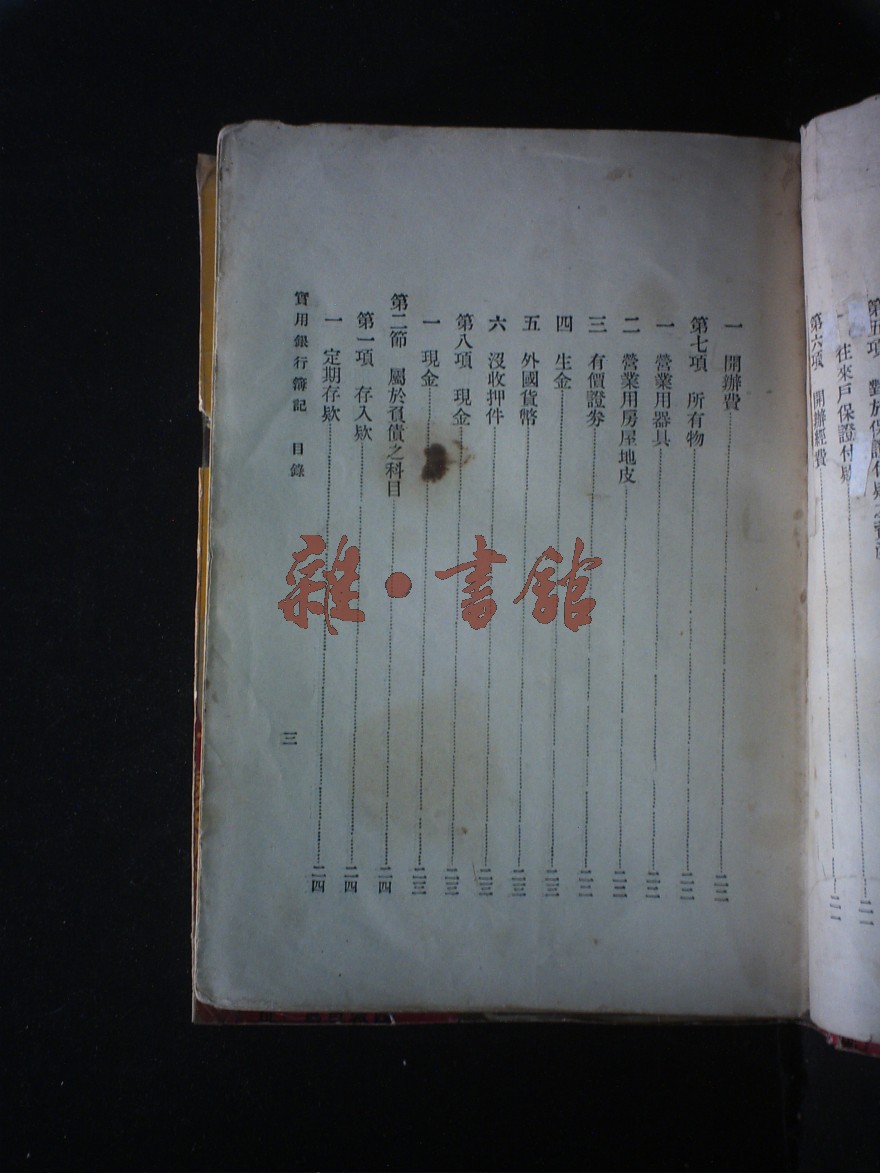 第五項 對於保證付欵之資產 二一
一 往來戶保證付欵
第六項 開辦經費 二一
一 開辦費 二二
第七項 所有物 二二
一 營業用器具 二二
二 營業用房屋地皮 二二
三 有價證劵 二三
四 生金 二三
五 外國貨幣 二三
六 沒收押件 二三
第八項 現金 二三
一 現金 二三
第二節 屬於負債之科目 二四
第一項 存入欵 二四
一 定期存欵 二四
實用銀行簿記 目錄
三
雜·書館